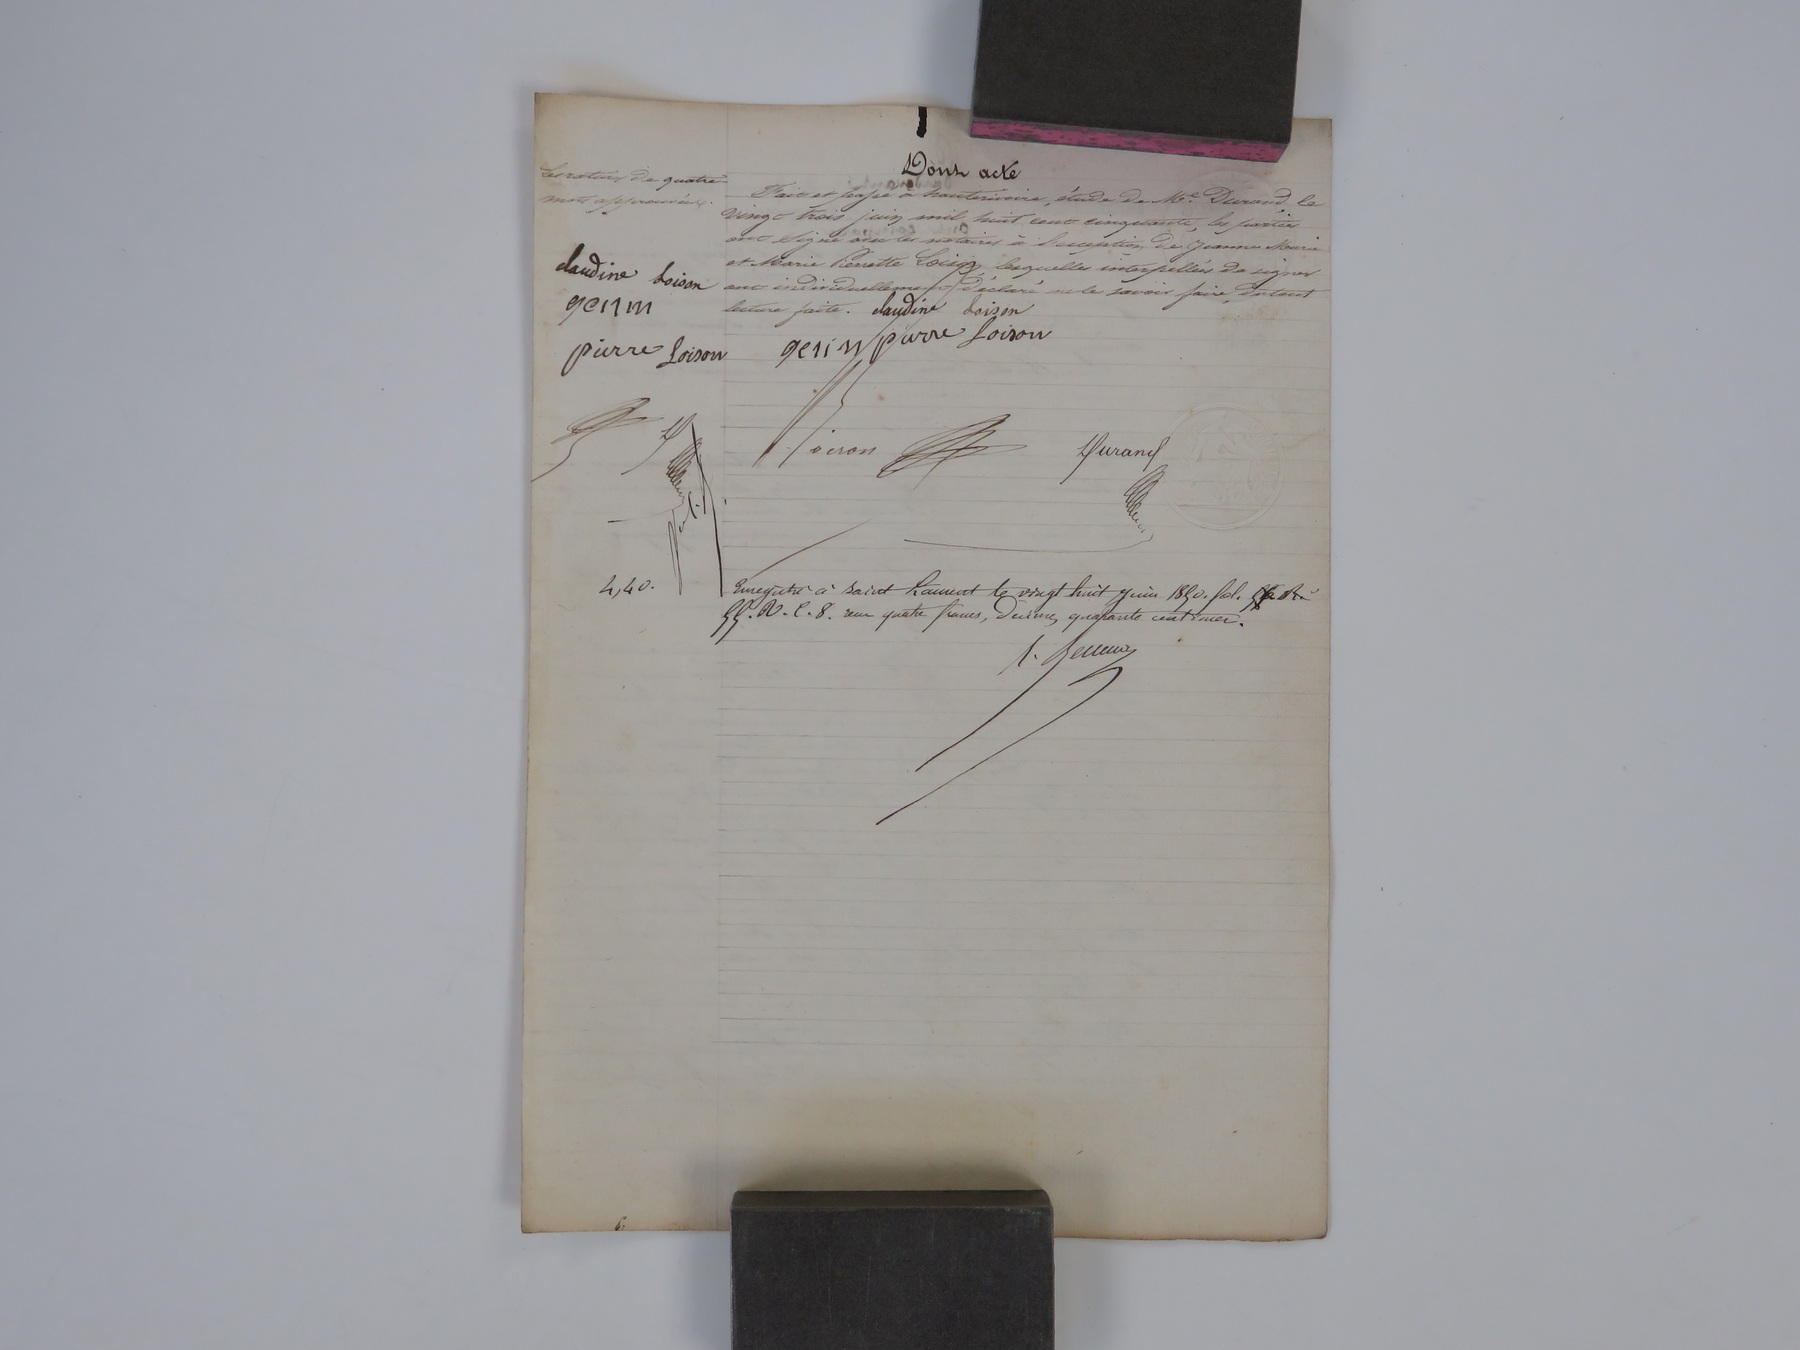 Dont acte
Fait et passé à hauterivoire, étude de Me. Durand, le
vingt trois juin mil huit cent cinquante, les parties
ont signé avec les notaires à l'exception de Jeanne Marie
et Marie Pierrette Loison, lesquelles interpellées de signer
ont individuellement déclaré ne le savoir faire, du tout
lecture faite. claudine Loison
genin pierre Loison
Durand
de quatre
mots approuvée.
claudine Loison
genin
pierre Loison
4,40.
Enregistré à Saint Laurent le vingt huit juin 1850. fol.
55. R. C. 8. reçu quatre francs, décime, quarante centimes.